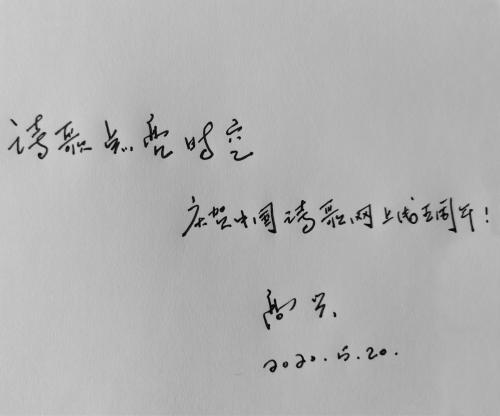 诗歌点亮时空
庆贺中国诗歌网上线五周年！
高兴
2020.5.20.